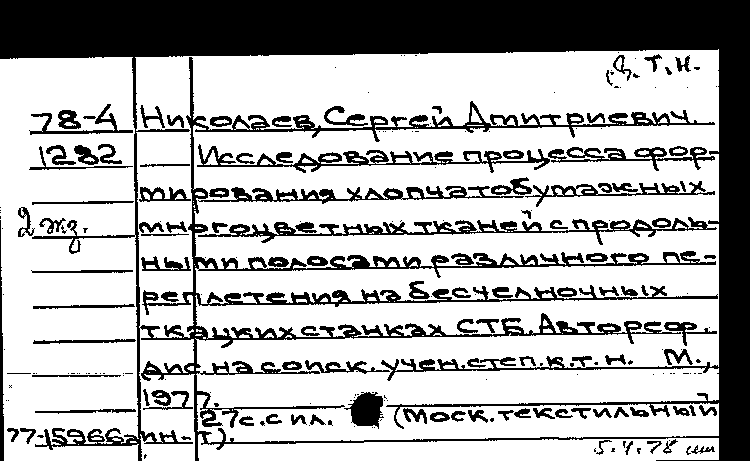 З. Т. Н.
78-4 Николаев, Сергей Дмитриевич.
1282 Исследование процесса фор-
мирования хлопчатобумажных
2 экз. многоцветных тканей с продоль-
ными полосами различного пе-
реплетения на бесчелночных
ткацких станках СТБ. Автореф.
дис. на соиск. учен. степ. к. т. н. М.,
1977.
27 с. с ил. (Моск. текстильный
77-15966а ин-т).
5.4.78